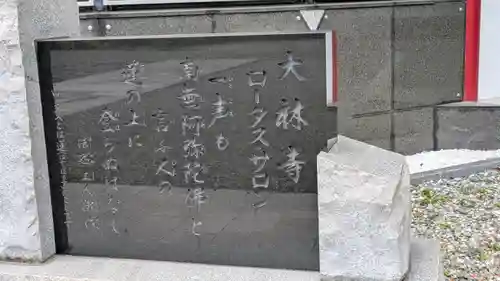 大林寺
ロータスサロン
一声も
南無阿弥陀佛と
言ふ人の
蓮の上に
登らぬはなし